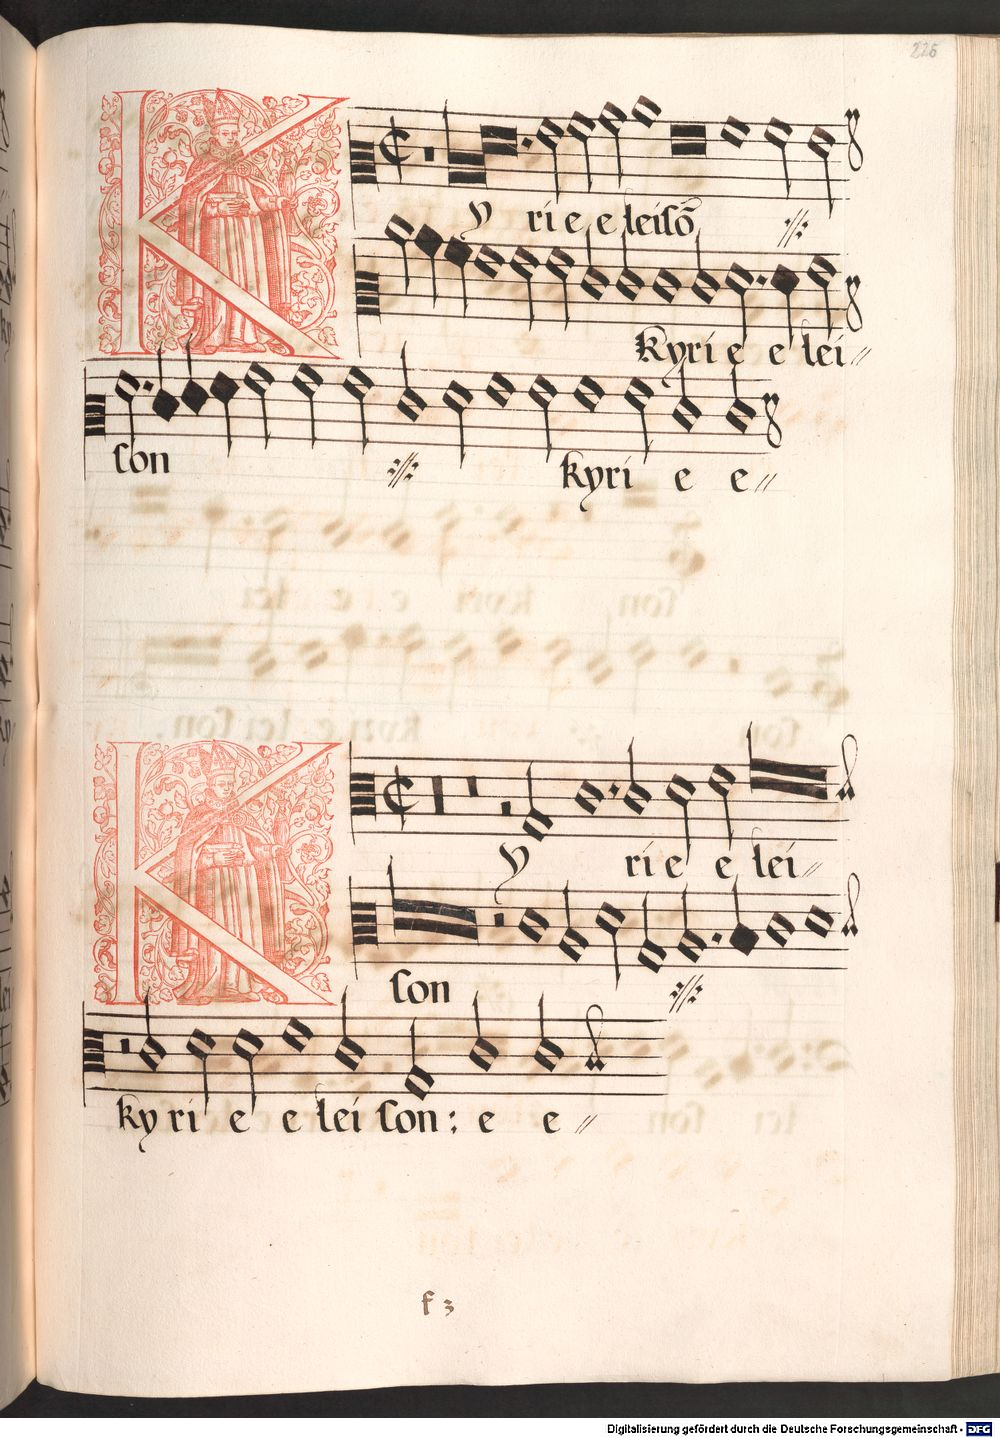 226
K y rie e leisō
kyrie e lei
son kyri e e
K y rie e lei
son
kyri e e lei son: e e
f 3
Digitalisierung gefördert durch die Deutsche Forschungsgemeinschaft - DFG